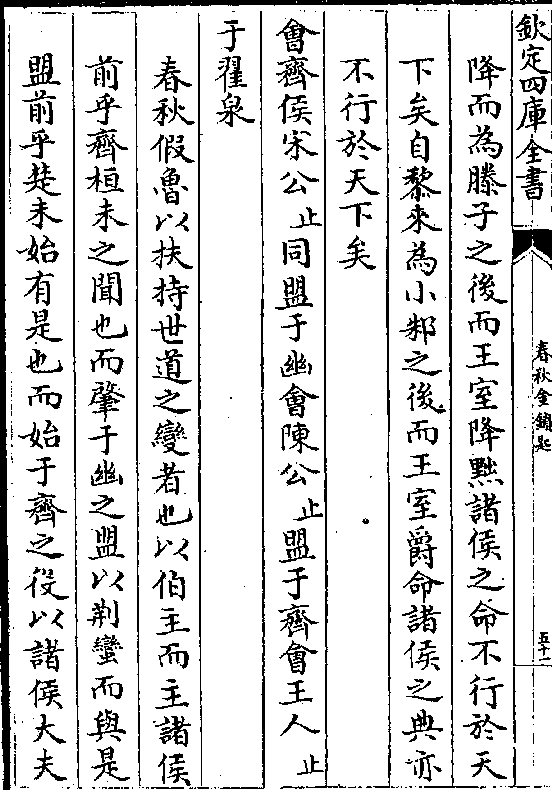 欽定四庫全書
春秋金鎖匙
五十一
降而為滕子之後而王室降黜諸侯之命不行於天
下矣自黎來為小邾之後而王室爵命諸侯之典亦
不行於天下矣
會齊侯宋公止同盟于幽會陳公止盟于齊會王人止
于翟泉
春秋假魯以扶持世道之變者也以伯主而主諸侯
前乎齊桓未之聞也而肇于幽之盟以荆蠻而與是
盟前乎楚未始有是也而始于齊之役以諸侯大夫